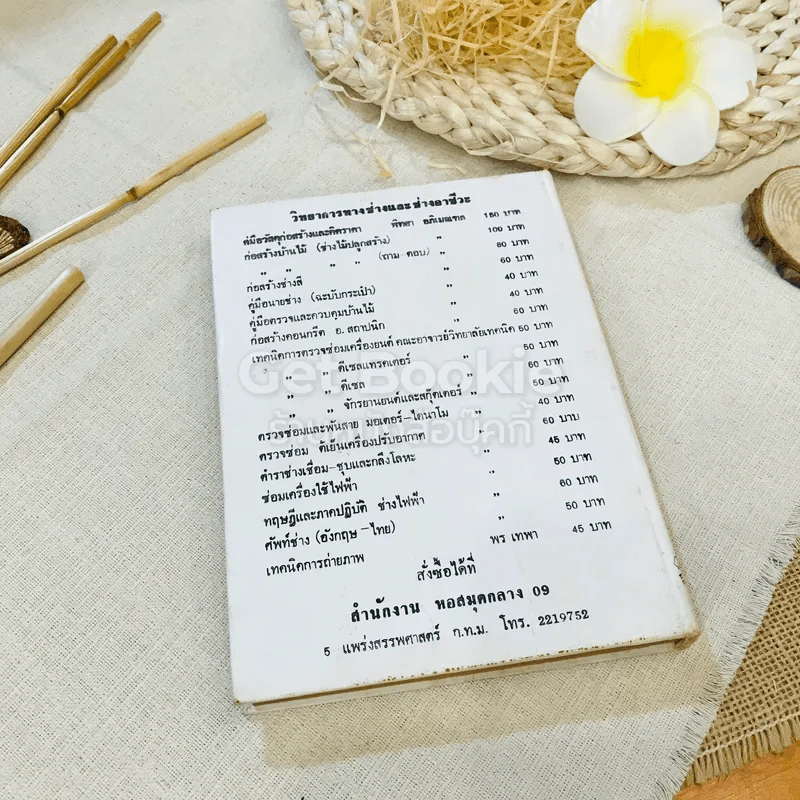 วิทยาการทางช่างและช่างอาชีวะ
คู่มือวัสดุก่อสร้างและคิดราคา พิทยา อภิเมณฑล 150 บาท
ก่อสร้างบ้านไม้ (ช่างไม้ปลูกสร้าง) " 100 บาท
" " " " (ถาม-ตอบ) " 80 บาท
ก่อสร้างช่างสี " 60 บาท
คู่มือนายช่าง (ฉะบับกระเป๋า) " 40 บาท
คู่มือตรวจและควบคุมบ้านไม้ " 40 บาท
ก่อสร้างคอนกรีต อ. สถาปนิก 60 บาท
เทคนิคการตรวจซ่อมเครื่องยนต์ คณะอาจารย์วิทยาลัยเทคนิค 50 บาท
" " ดีเซลแทรคเตอร์ " 50 บาท
" " ดีเซล " 60 บาท
" " จักรยานยนต์และสกู๊ตเตอร์ " 50 บาท
ตรวจซ่อมและพันสาย มอเตอร์-ไดนาโม " 40 บาท
ตรวจซ่อม ตู้เย็นเครื่องปรับอากาศ " 60 บาบ
ตำราช่างเชื่อม-ชุบและกลึงโลหะ " 45 บาท
ซ่อมเครื่องใช้ไฟฟ้า " 50 บาท
ทฤษฎีและภาคปฏิบัติ ช่างไฟฟ้า " 60 บาท
ศัพท์ช่าง (อังกฤษ-ไทย) " 50 บาท
เทคนิคการถ่ายภาพ พร เทพา 45 บาท
สั่งซื้อได้ที่
สำนักงาน หอสมุดกลาง 09
5 แพร่งสรรพศาสตร์ ก.ท.ม. โทร. 2219752
Get Bookie
ร้านหนังสือบุ๊คกี้